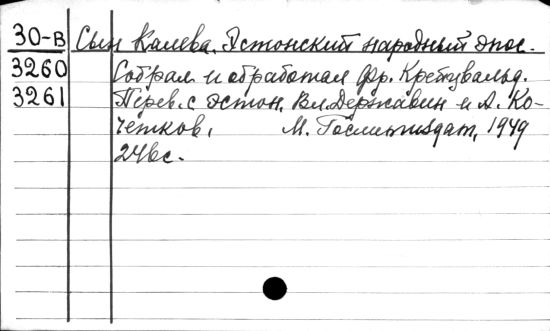 30-В Сын Калева. Эстонский народный эпос.
3260 Собрал и обработал Фр. Крейцвальд.
3261 Перев. с эстон. Вл. Державин и А. Ко-
четков, М. Гослитиздат, 1949
246с.